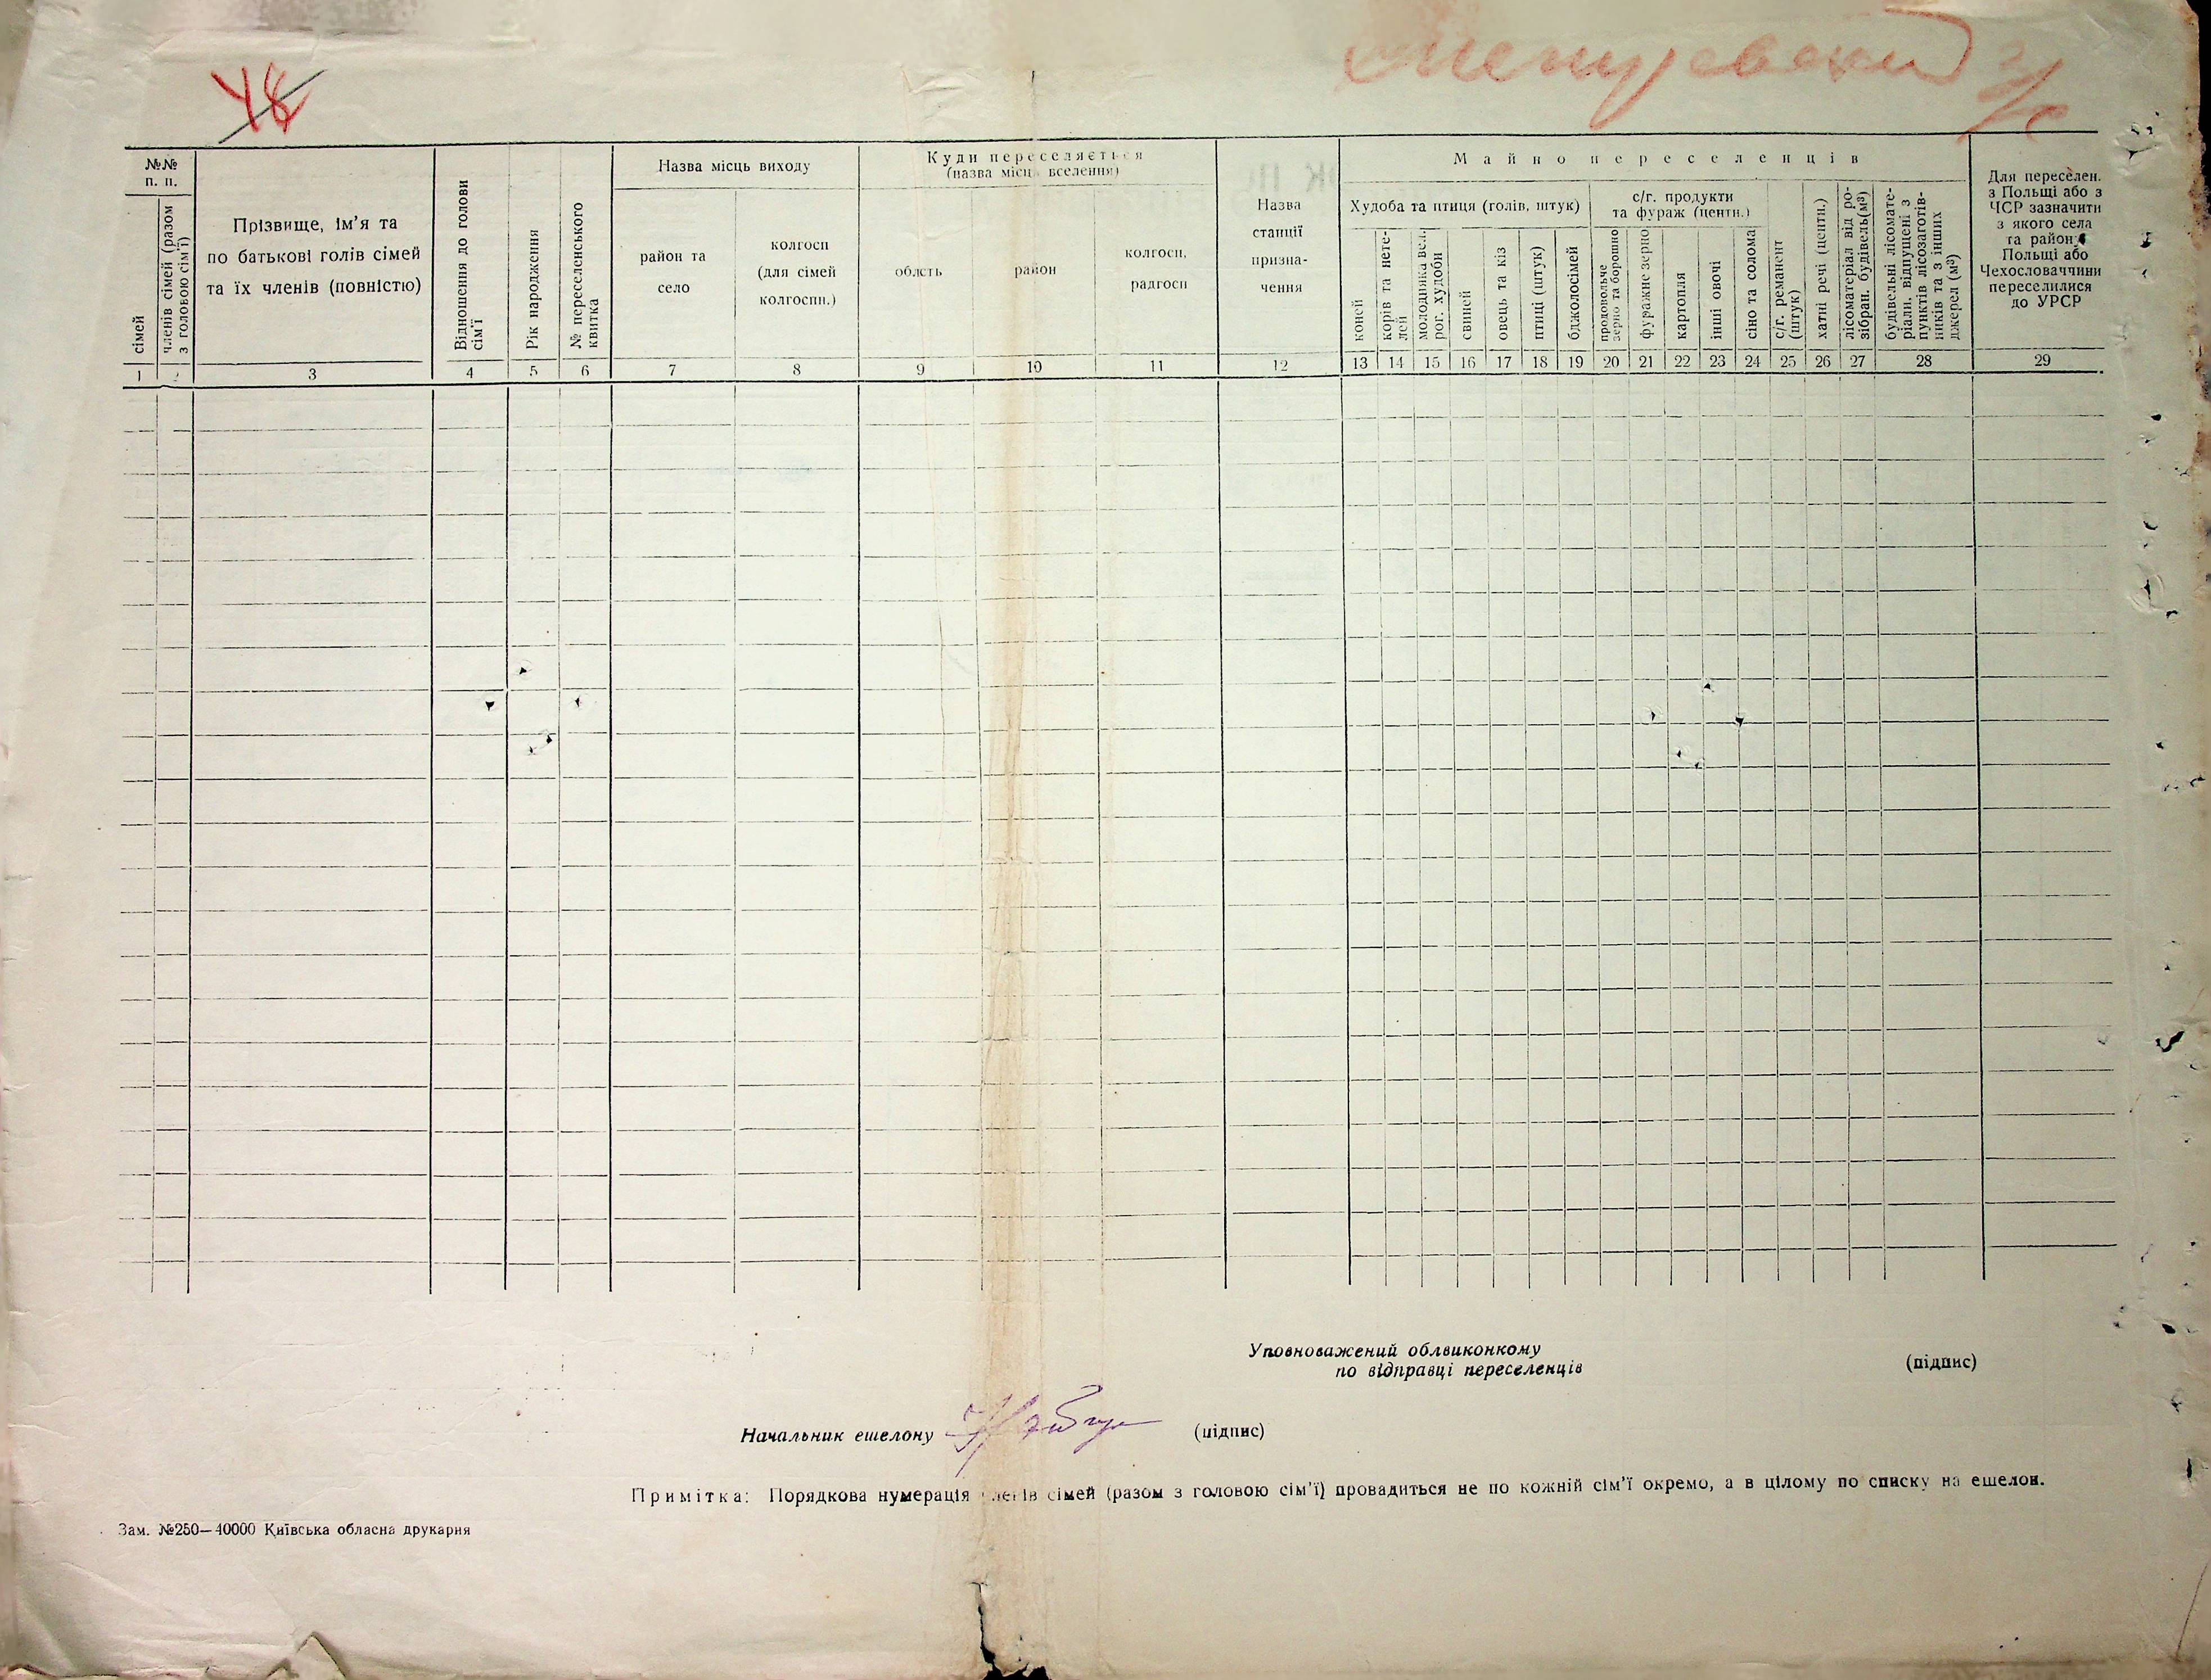 48
№№ п. п.
сімей
членів сімей (разом з головою сім'ї)
Прізвище, ім'я та
по батькові голів сімей
та їх членів (повністю)
Відношення до голови сім'ї
Рік народження
№ переселенського квитка
Назва місць виходу
район та
село
колгосп
(для сімей
колгоспн.)
Куди переселяється
(назва місць вселення)
область
район
колгосп,
радгосп
Назва
станції
призна-
чення
Майно переселенців
Худоба та птиця (голів, штук)
коней
корів та нете-
лей
молодняка вел.
рог. худоби
свиней
овець та кіз
птиці (штук)
бджолосімей
с/г. продукти
та фураж (центн.)
продовольче
зерно та борошно
фуражне зерно
картопля
інші овочі
сіно та солома
с/г. реманент
(штук)
хатні речі (центн.)
лісоматеріал від ро-
зібран. будівель(м³)
будівельні лісомате-
ріали, відпущені з
пунктів лісозаготів-
ників та з інших
джерел (м³)
Для переселен.
з Польщі або з
ЧСР зазначити
з якого села
та району
Польщі або
Чехословаччини
переселилися
до УРСР
1 2 3 4 5 6 7 8 9 10 11 12 13 14 15 16 17 18 19 20 21 22 23 24 25 26 27 28 29
Уповноважений облвиконкому
по відправці переселенців (підпис)
Начальник ешелону (підпис)
Примітка: Порядкова нумерація членів сімей (разом з головою сім'ї) провадиться не по кожній сім'ї окремо, а в цілому по списку на ешелон.
Зам. №250—40000 Київська обласна друкарня